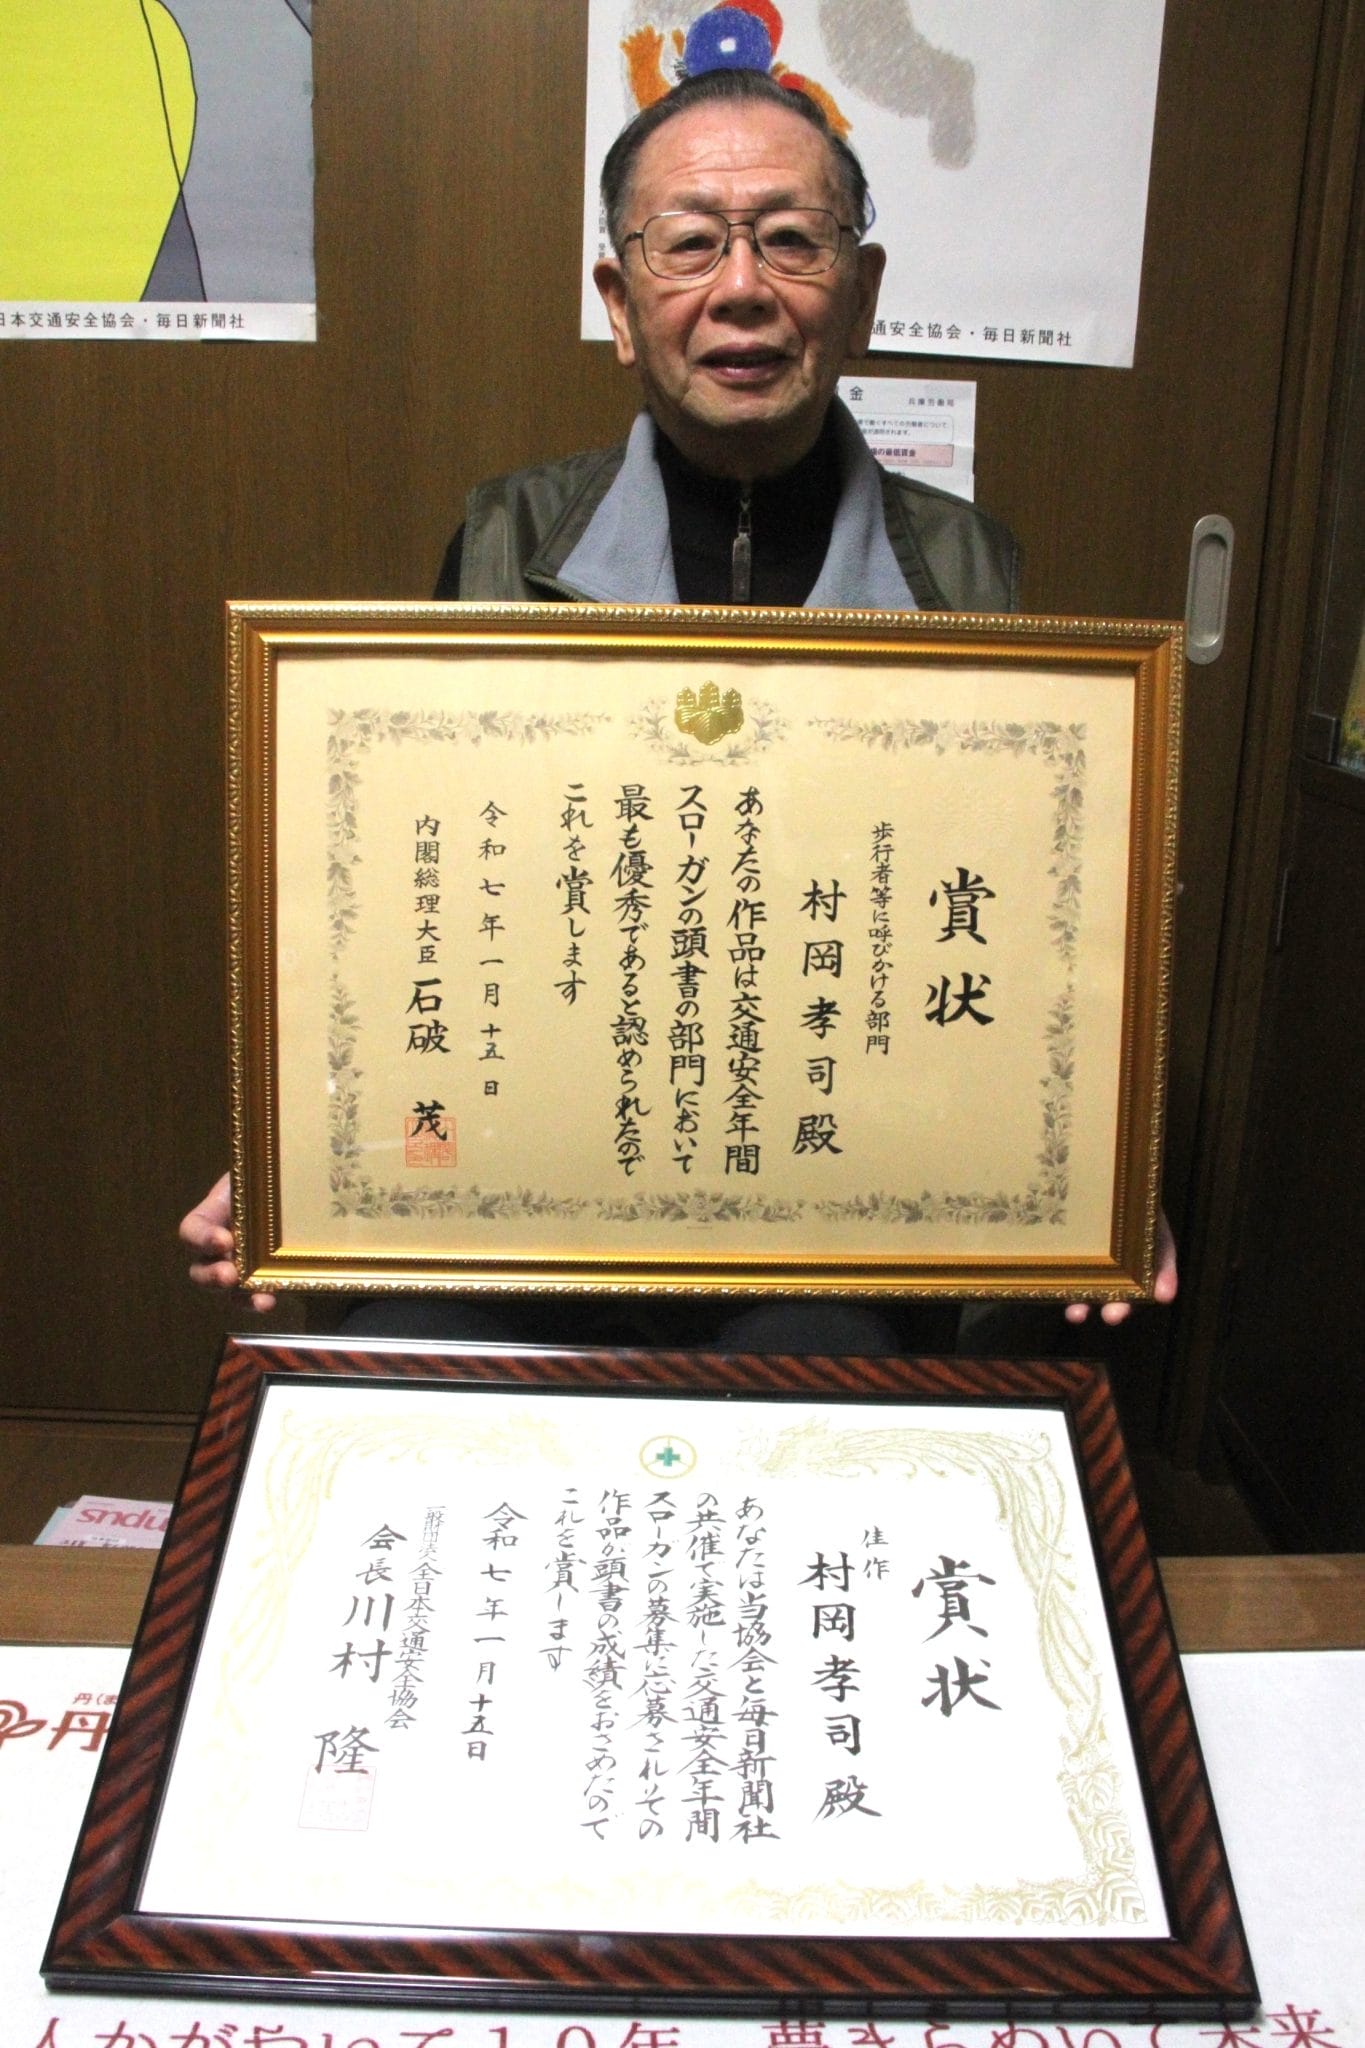 日本交通安全協会・毎日新聞社
通安全協会・毎日新聞社
金
兵庫労働局
賞状
歩行者等に呼びかける部門
村岡孝司殿
あなたの作品は交通安全年間
スローガンの頭書の部門において
最も優秀であると認められたので
これを賞します
令和七年一月十五日
内閣総理大臣 石破 茂
賞状
佳作
村岡孝司殿
あなたは当協会と毎日新聞社
の共催で実施した交通安全年間
スローガンの募集に応募されその
作品が頭書の成績をおさめたので
これを賞します
令和七年一月十五日
一般財団法人全日本交通安全協会
会長 川村 隆
丹